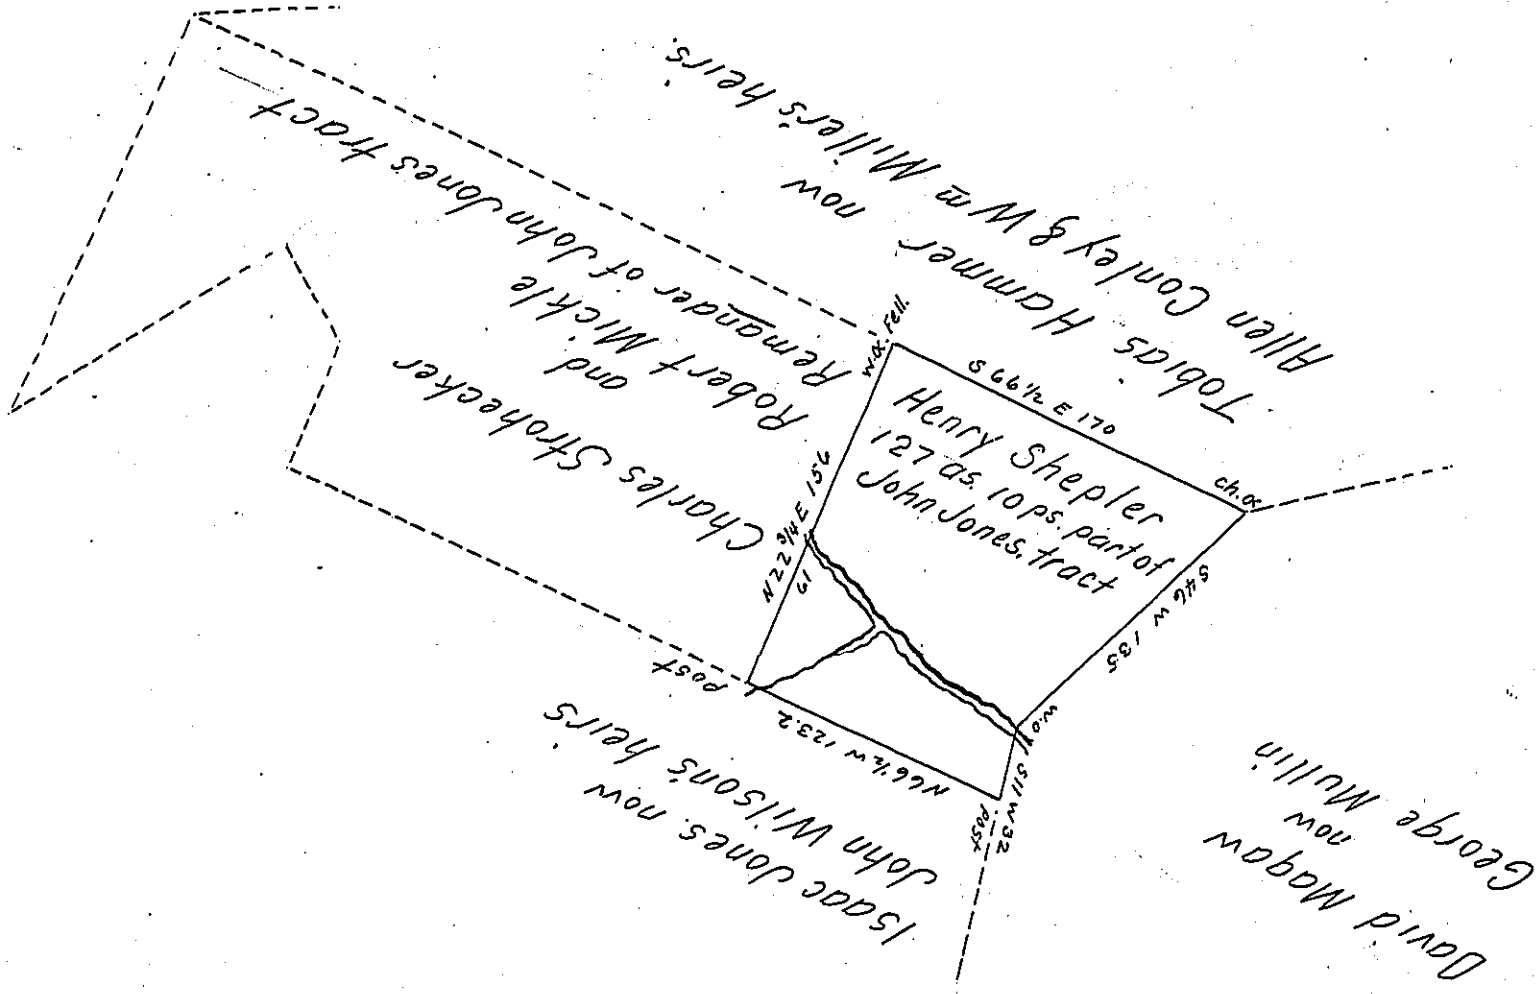 Tobias Hammer now
Allen Conley & Wm Miller's heirs.
Charles Strohecker
and
Robert Mickle
Remander of John Jones tract
Henry Shepler
127 as. 10 ps. part of
John Jones. tract
w.o. Fell.
S 66 1/2 E 170
ch. o
S 46 W 135
w.o.
S 11 W 32
post
N 66 1/2 W 123.2
post
N 22 3/4 E 156
61
Isaac Jones. now
John Wilson's heirs
David Magaw
now
George Mullin